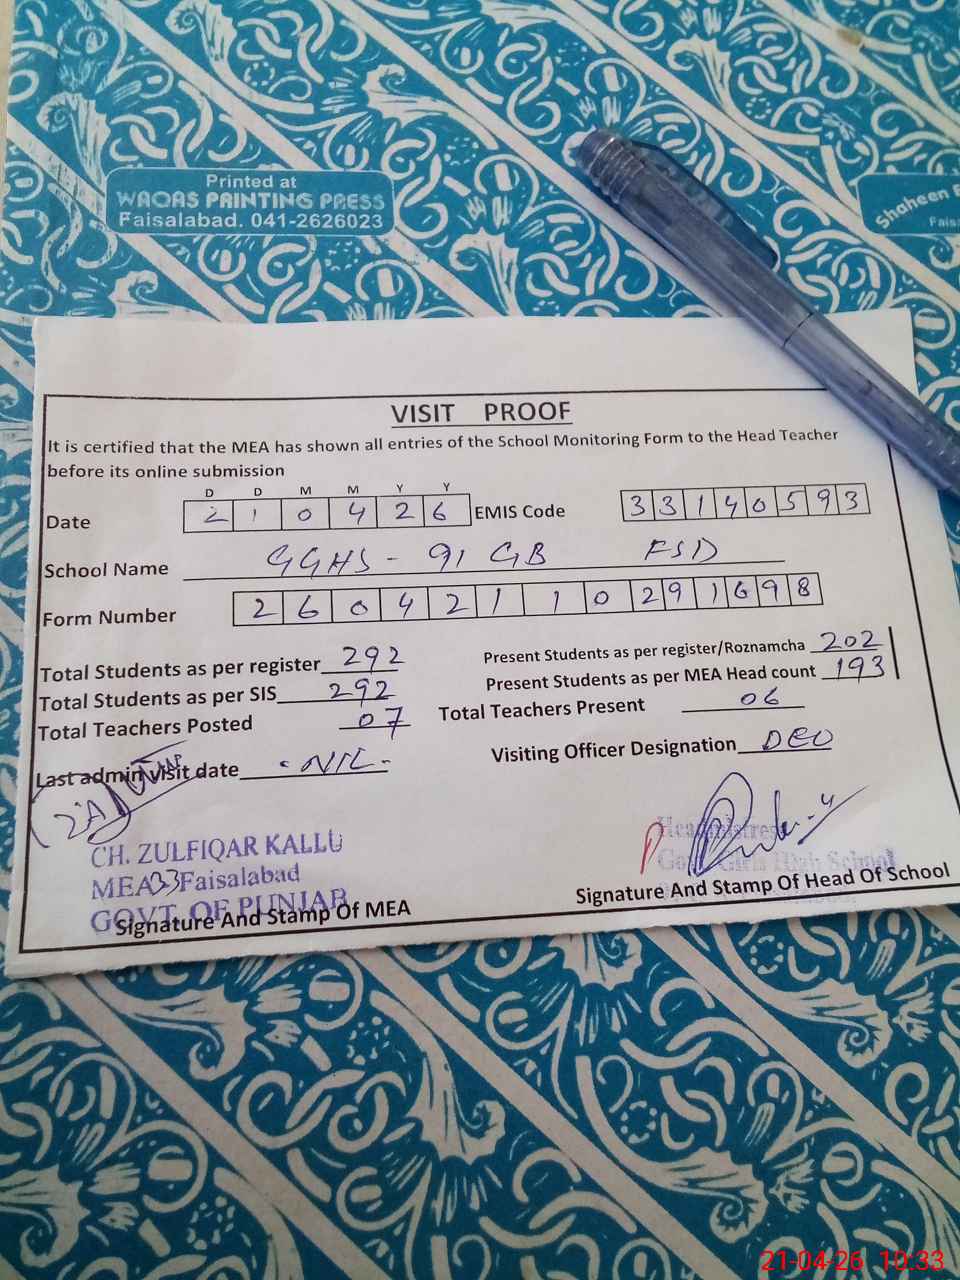 Printed at
WAQAS PRINTING PRESS
Faisalabad. 041-2626023
Shaheen
Fais
VISIT PROOF
It is certified that the MEA has shown all entries of the School Monitoring Form to the Head Teacher
before its online submission
D D M M Y Y
Date 2 1 0 4 2 6 EMIS Code 3 3 1 4 0 5 9 3
School Name GGHS - 91 GB FSD
Form Number 2 6 0 4 2 1 1 0 2 9 1 6 9 8
Total Students as per register 292 Present Students as per register/Roznamcha 202
Total Students as per SIS 292 Present Students as per MEA Head count 193
Total Teachers Posted 07 Total Teachers Present 06
Last admin visit date - NIL - Visiting Officer Designation DEO
CH. ZULFIQAR KALLU
MEA 33 Faisalabad
GOVT. OF PUNJAB
Headmistress
Govt. Girls High School
Signature And Stamp Of MEA Signature And Stamp Of Head Of School
21-04-26 10:33